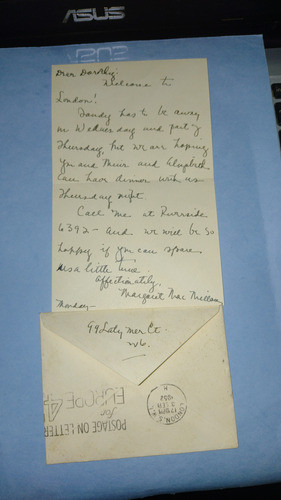 ASUS
Dear Dorothy:
Welcome to
London!
Sandy has to be away
on Wednesday and part of
Thursday, but we are hoping
you and Muir and Elizabeth
can have dinner with us
Thursday night.
Call me at Riverside
6392 - And we will be so
happy if you can spare
us a little time
Affectionately,
Margaret MacMillan
Monday
99 Latymer Ct.
W6.
POSTAGE ON LETTER
for
EUROPE 4
LONDON
1952